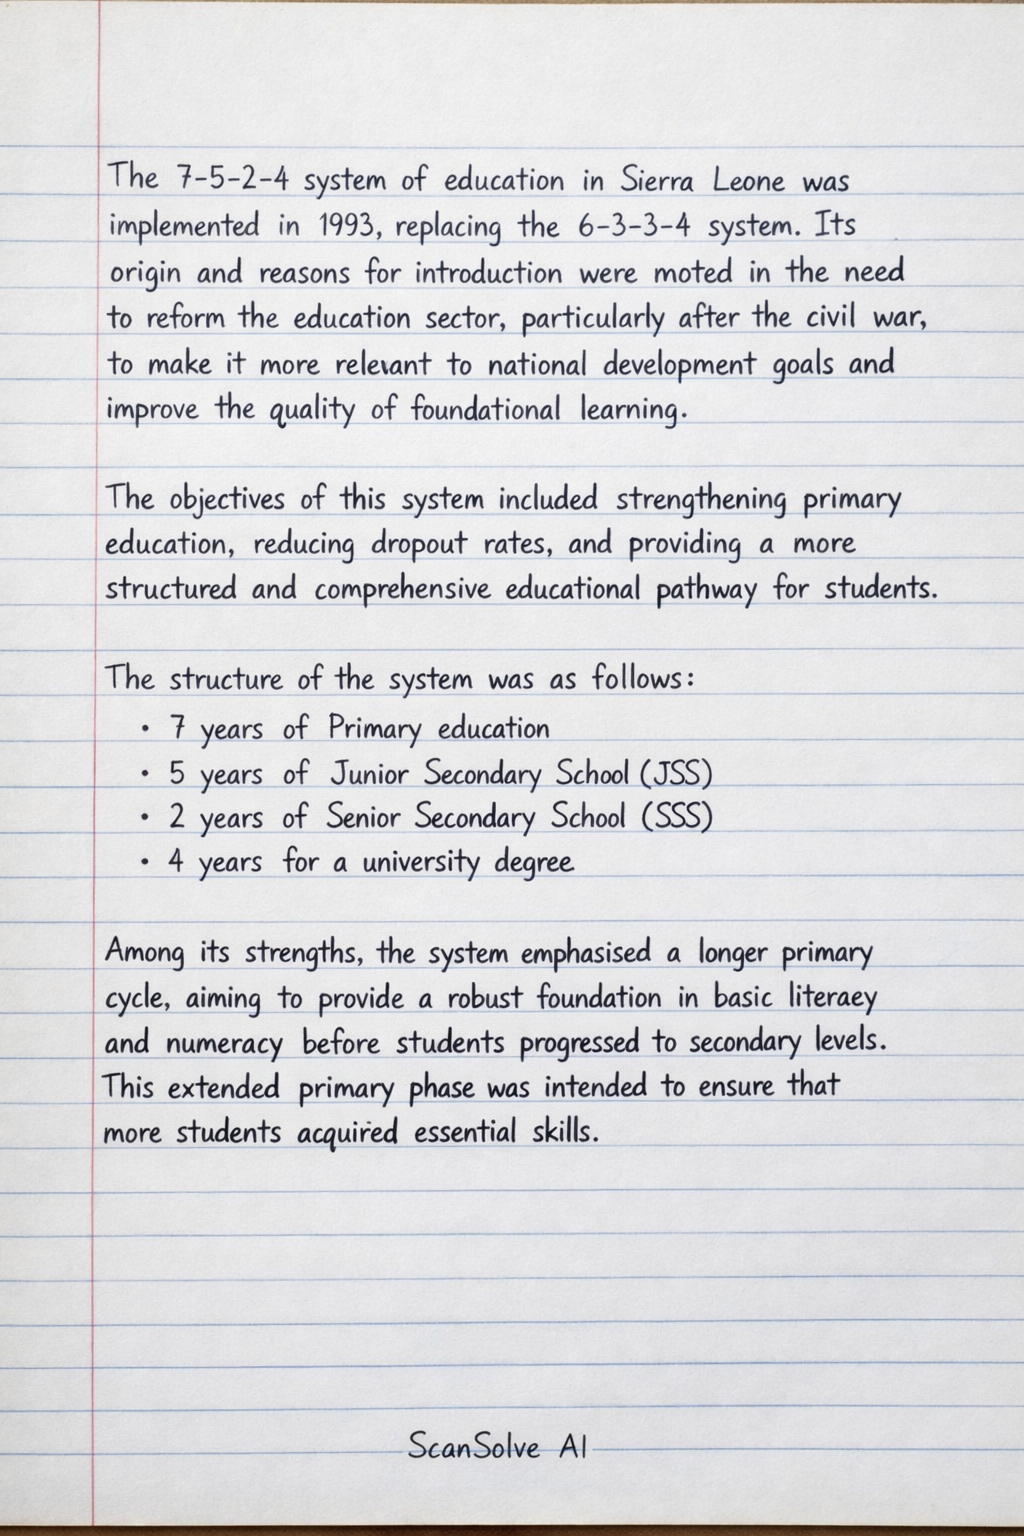 The 7-5-2-4 system of education in Sierra Leone was
implemented in 1993, replacing the 6-3-3-4 system. Its
origin and reasons for introduction were moted in the need
to reform the education sector, particularly after the civil war,
to make it more relevant to national development goals and
improve the quality of foundational learning.
The objectives of this system included strengthening primary
education, reducing dropout rates, and providing a more
structured and comprehensive educational pathway for students.
The structure of the system was as follows:
• 7 years of Primary education
• 5 years of Junior Secondary School (JSS)
• 2 years of Senior Secondary School (SSS)
• 4 years for a university degree
Among its strengths, the system emphasised a longer primary
cycle, aiming to provide a robust foundation in basic literaey
and numeracy before students progressed to secondary levels.
This extended primary phase was intended to ensure that
more students acquired essential skills.
ScanSolve AI